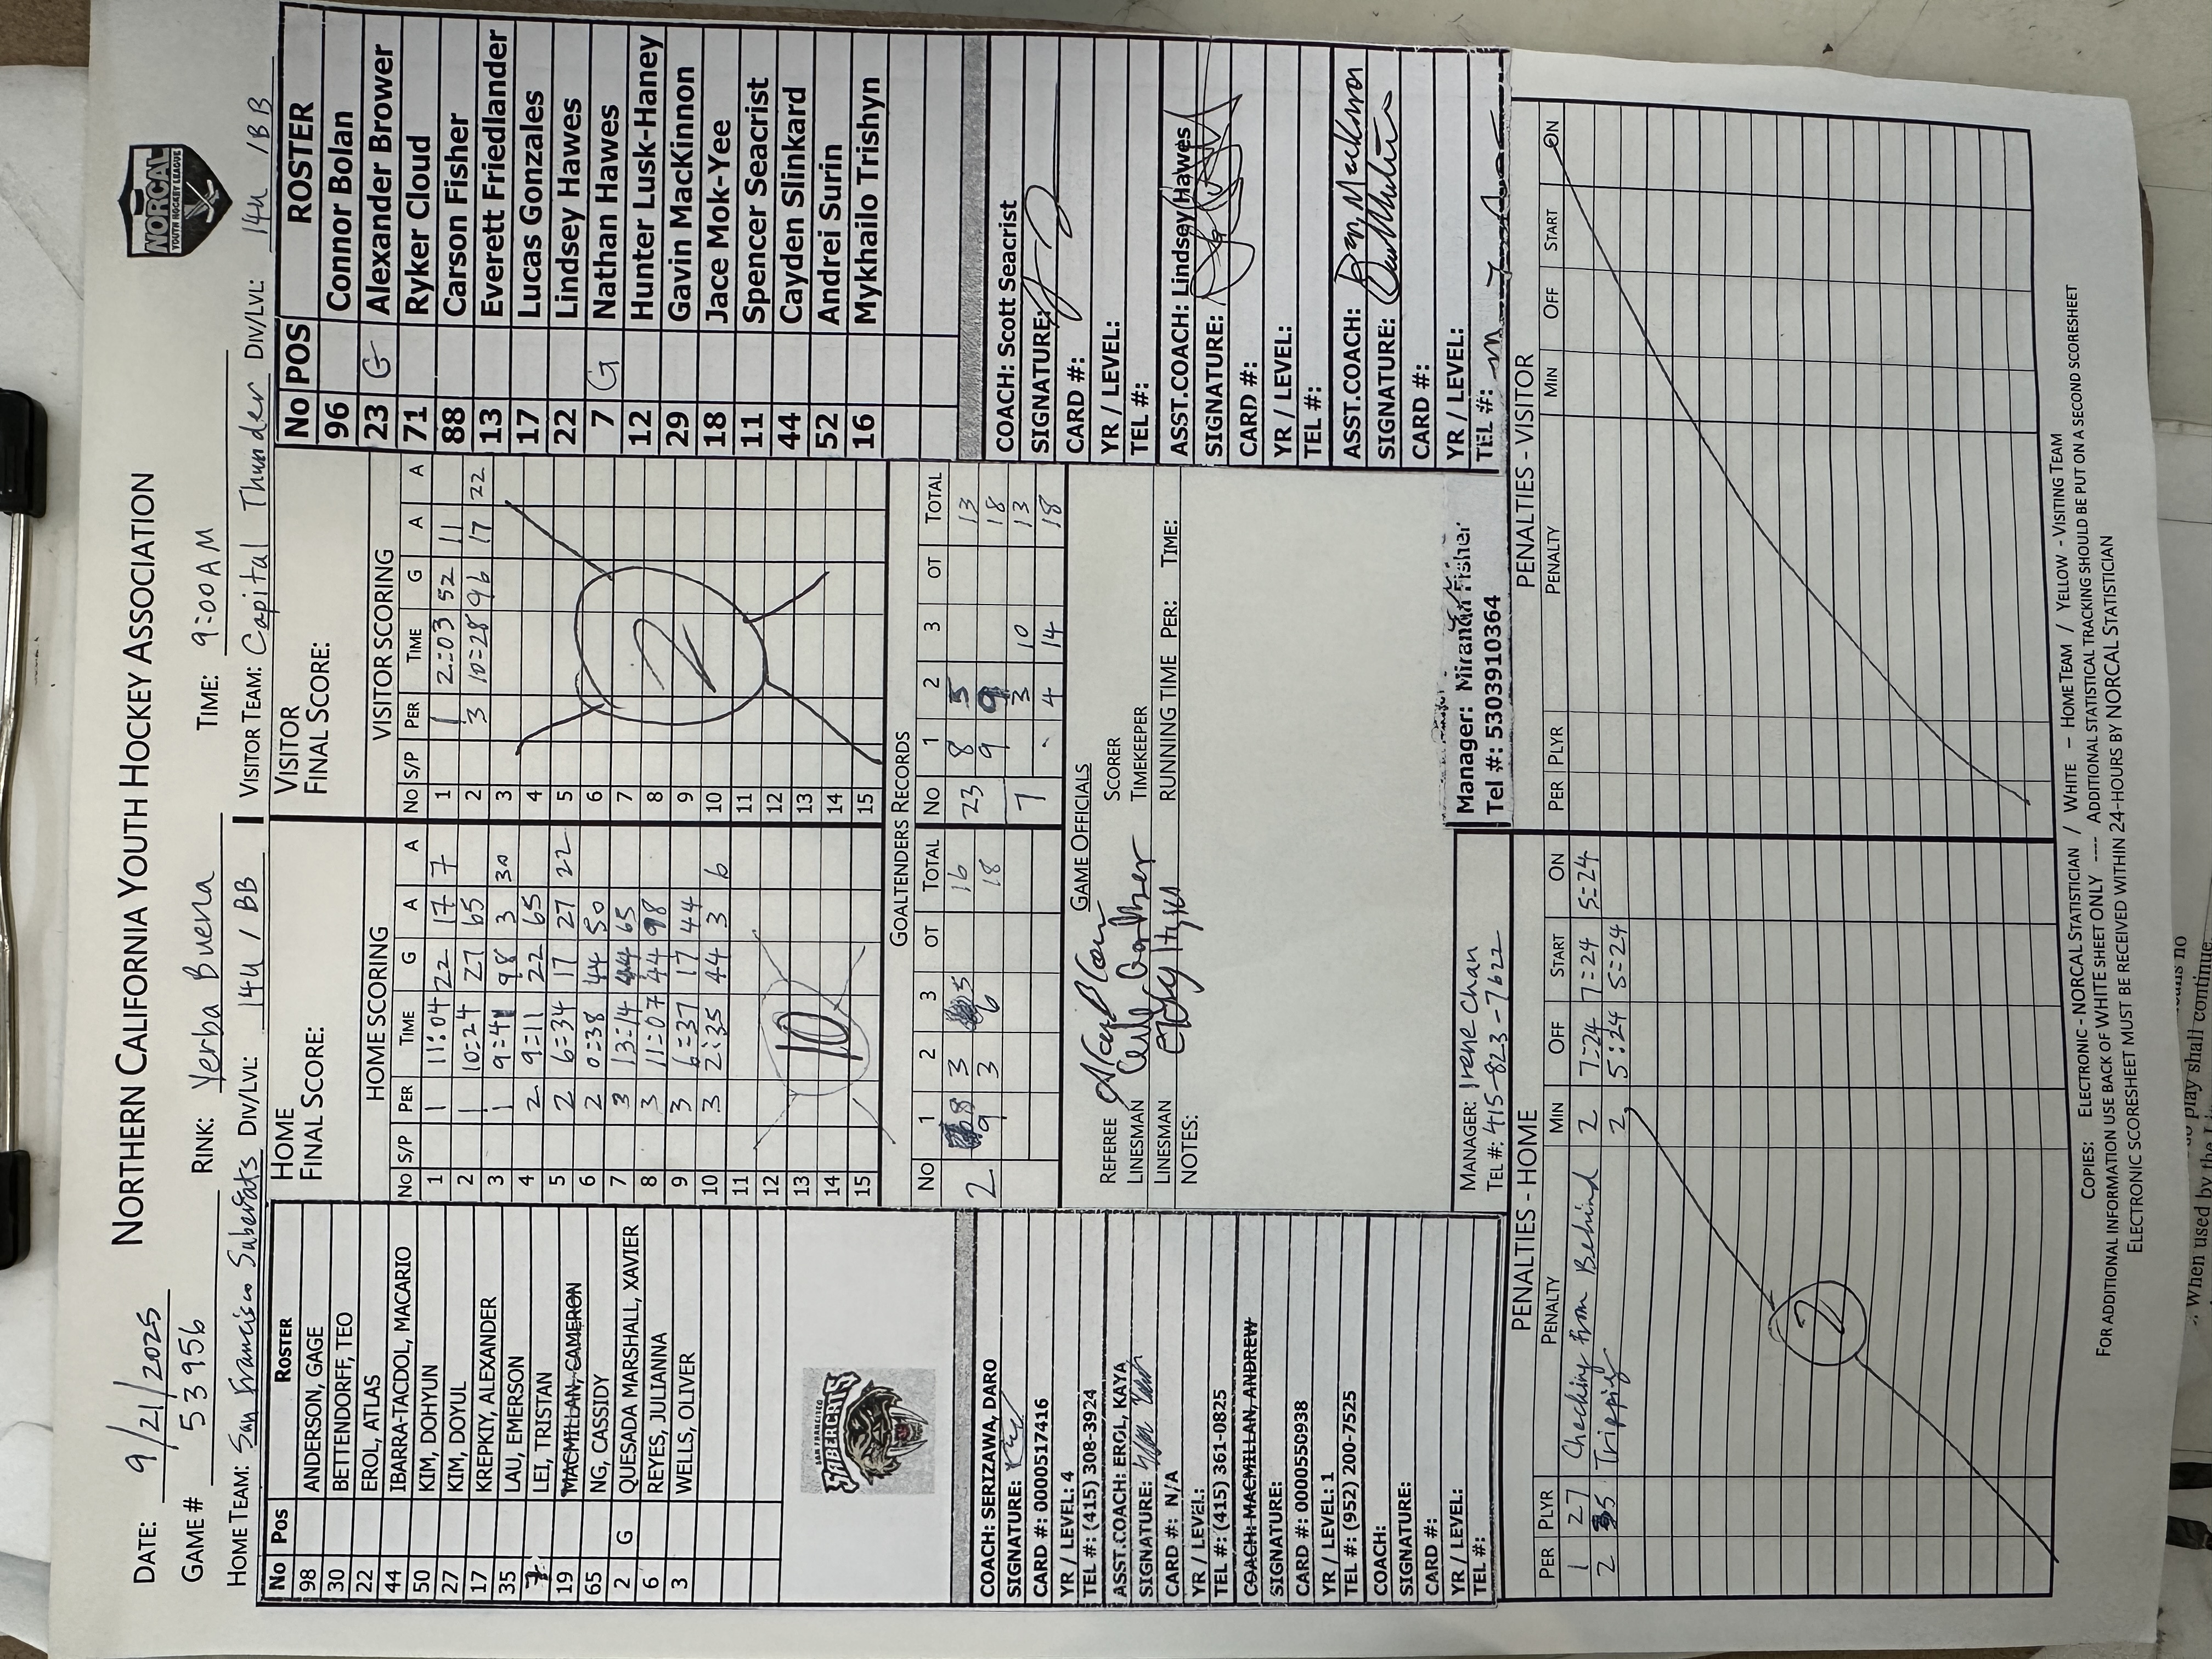 NORTHERN CALIFORNIA YOUTH HOCKEY ASSOCIATION
NORCAL
YOUTH HOCKEY LEAGUE
DATE: 9/21/2025
GAME # 53956 RINK: Yerba Buena TIME: 9:00AM
HOME TEAM: San Francisco Sabercats DIV/LVL: 14U / BB VISITOR TEAM: Capital Thunder DIV/LVL: 14U / BB
No Pos ROSTER
98 ANDERSON, GAGE
30 BETTENDORFF, TEO
22 EROL, ATLAS
44 IBARRA-TACDOL, MACARIO
50 KIM, DOHYUN
27 KIM, DOYUL
17 KREPKIY, ALEXANDER
35 LAU, EMERSON
7 LEI, TRISTAN
19 MACMILLAN, CAMERON
65 NG, CASSIDY
2 G QUESADA MARSHALL, XAVIER
6 REYES, JULIANNA
3 WELLS, OLIVER
SAN FRANCISCO
SABERCATS
COACH: SERIZAWA, DARO
SIGNATURE:
CARD #: 0000517416
YR / LEVEL: 4
TEL #: (415) 308-3924
ASST.COACH: EROL, KAYA
SIGNATURE:
CARD #: N/A
YR / LEVEL:
TEL #: (415) 361-0825
COACH: MACMILLAN, ANDREW
SIGNATURE:
CARD #: 0000550938
YR / LEVEL: 1
TEL #: (952) 200-7525
COACH:
SIGNATURE:
CARD #:
YR / LEVEL:
TEL #:
HOME
FINAL SCORE:
HOME SCORING
No S/P PER TIME G A A
1 1 11:04 22 17 7
2 1 10:24 27 65
3 1 9:41 98 3 30
4 2 9:11 22 65
5 2 6:34 17 27 22
6 2 0:38 44 50
7 3 13:14 44 65
8 3 11:07 44 98
9 3 6:37 17 44
10 3 2:35 44 3 6
11
12
13
14
15
10
VISITOR
FINAL SCORE:
VISITOR SCORING
No S/P PER TIME G A A
1 1 2:03 52 11
2 3 10:28 96 17 22
3
4
5
6
7
8
9
10
11
12
13
14
15
2
GOALTENDERS RECORDS
No 1 2 3 OT TOTAL No 1 2 3 OT TOTAL
2 8 3 5 16 23 8 5 13
9 3 6 18 9 9 18
7 3 10 13
4 14 18
GAME OFFICIALS
REFEREE SCORER
LINESMAN TIMEKEEPER
LINESMAN RUNNING TIME PER: TIME:
NOTES:
MANAGER: Irene Chan
TEL #: 415-823-7622
Manager: Miranda Fisher
Tel #: 5303910364
No POS ROSTER
96 Connor Bolan
23 G Alexander Brower
71 Ryker Cloud
88 Carson Fisher
13 Everett Friedlander
17 Lucas Gonzales
22 Lindsey Hawes
7 G Nathan Hawes
12 Hunter Lusk-Haney
29 Gavin MacKinnon
18 Jace Mok-Yee
11 Spencer Seacrist
44 Cayden Slinkard
52 Andrei Surin
16 Mykhailo Trishyn
COACH: Scott Seacrist
SIGNATURE:
CARD #:
YR / LEVEL:
TEL #:
ASST.COACH: Lindsey Hawes
SIGNATURE:
CARD #:
YR / LEVEL:
TEL #:
ASST.COACH:
SIGNATURE:
CARD #:
YR / LEVEL:
TEL #:
PENALTIES - HOME
PER PLYR PENALTY MIN OFF START ON
1 27 Checking from Behind 2 7:24 7:24 5:24
2 Tripping 2 5:24 5:24
2
PENALTIES - VISITOR
PER PLYR PENALTY MIN OFF START ON
COPIES: ELECTRONIC - NORCAL STATISTICIAN / WHITE - HOME TEAM / YELLOW - VISITING TEAM
FOR ADDITIONAL INFORMATION USE BACK OF WHITE SHEET ONLY ---- ADDITIONAL STATISTICAL TRACKING SHOULD BE PUT ON A SECOND SCORESHEET
ELECTRONIC SCORESHEET MUST BE RECEIVED WITHIN 24-HOURS BY NORCAL STATISTICIAN
play shall continue
When used by the